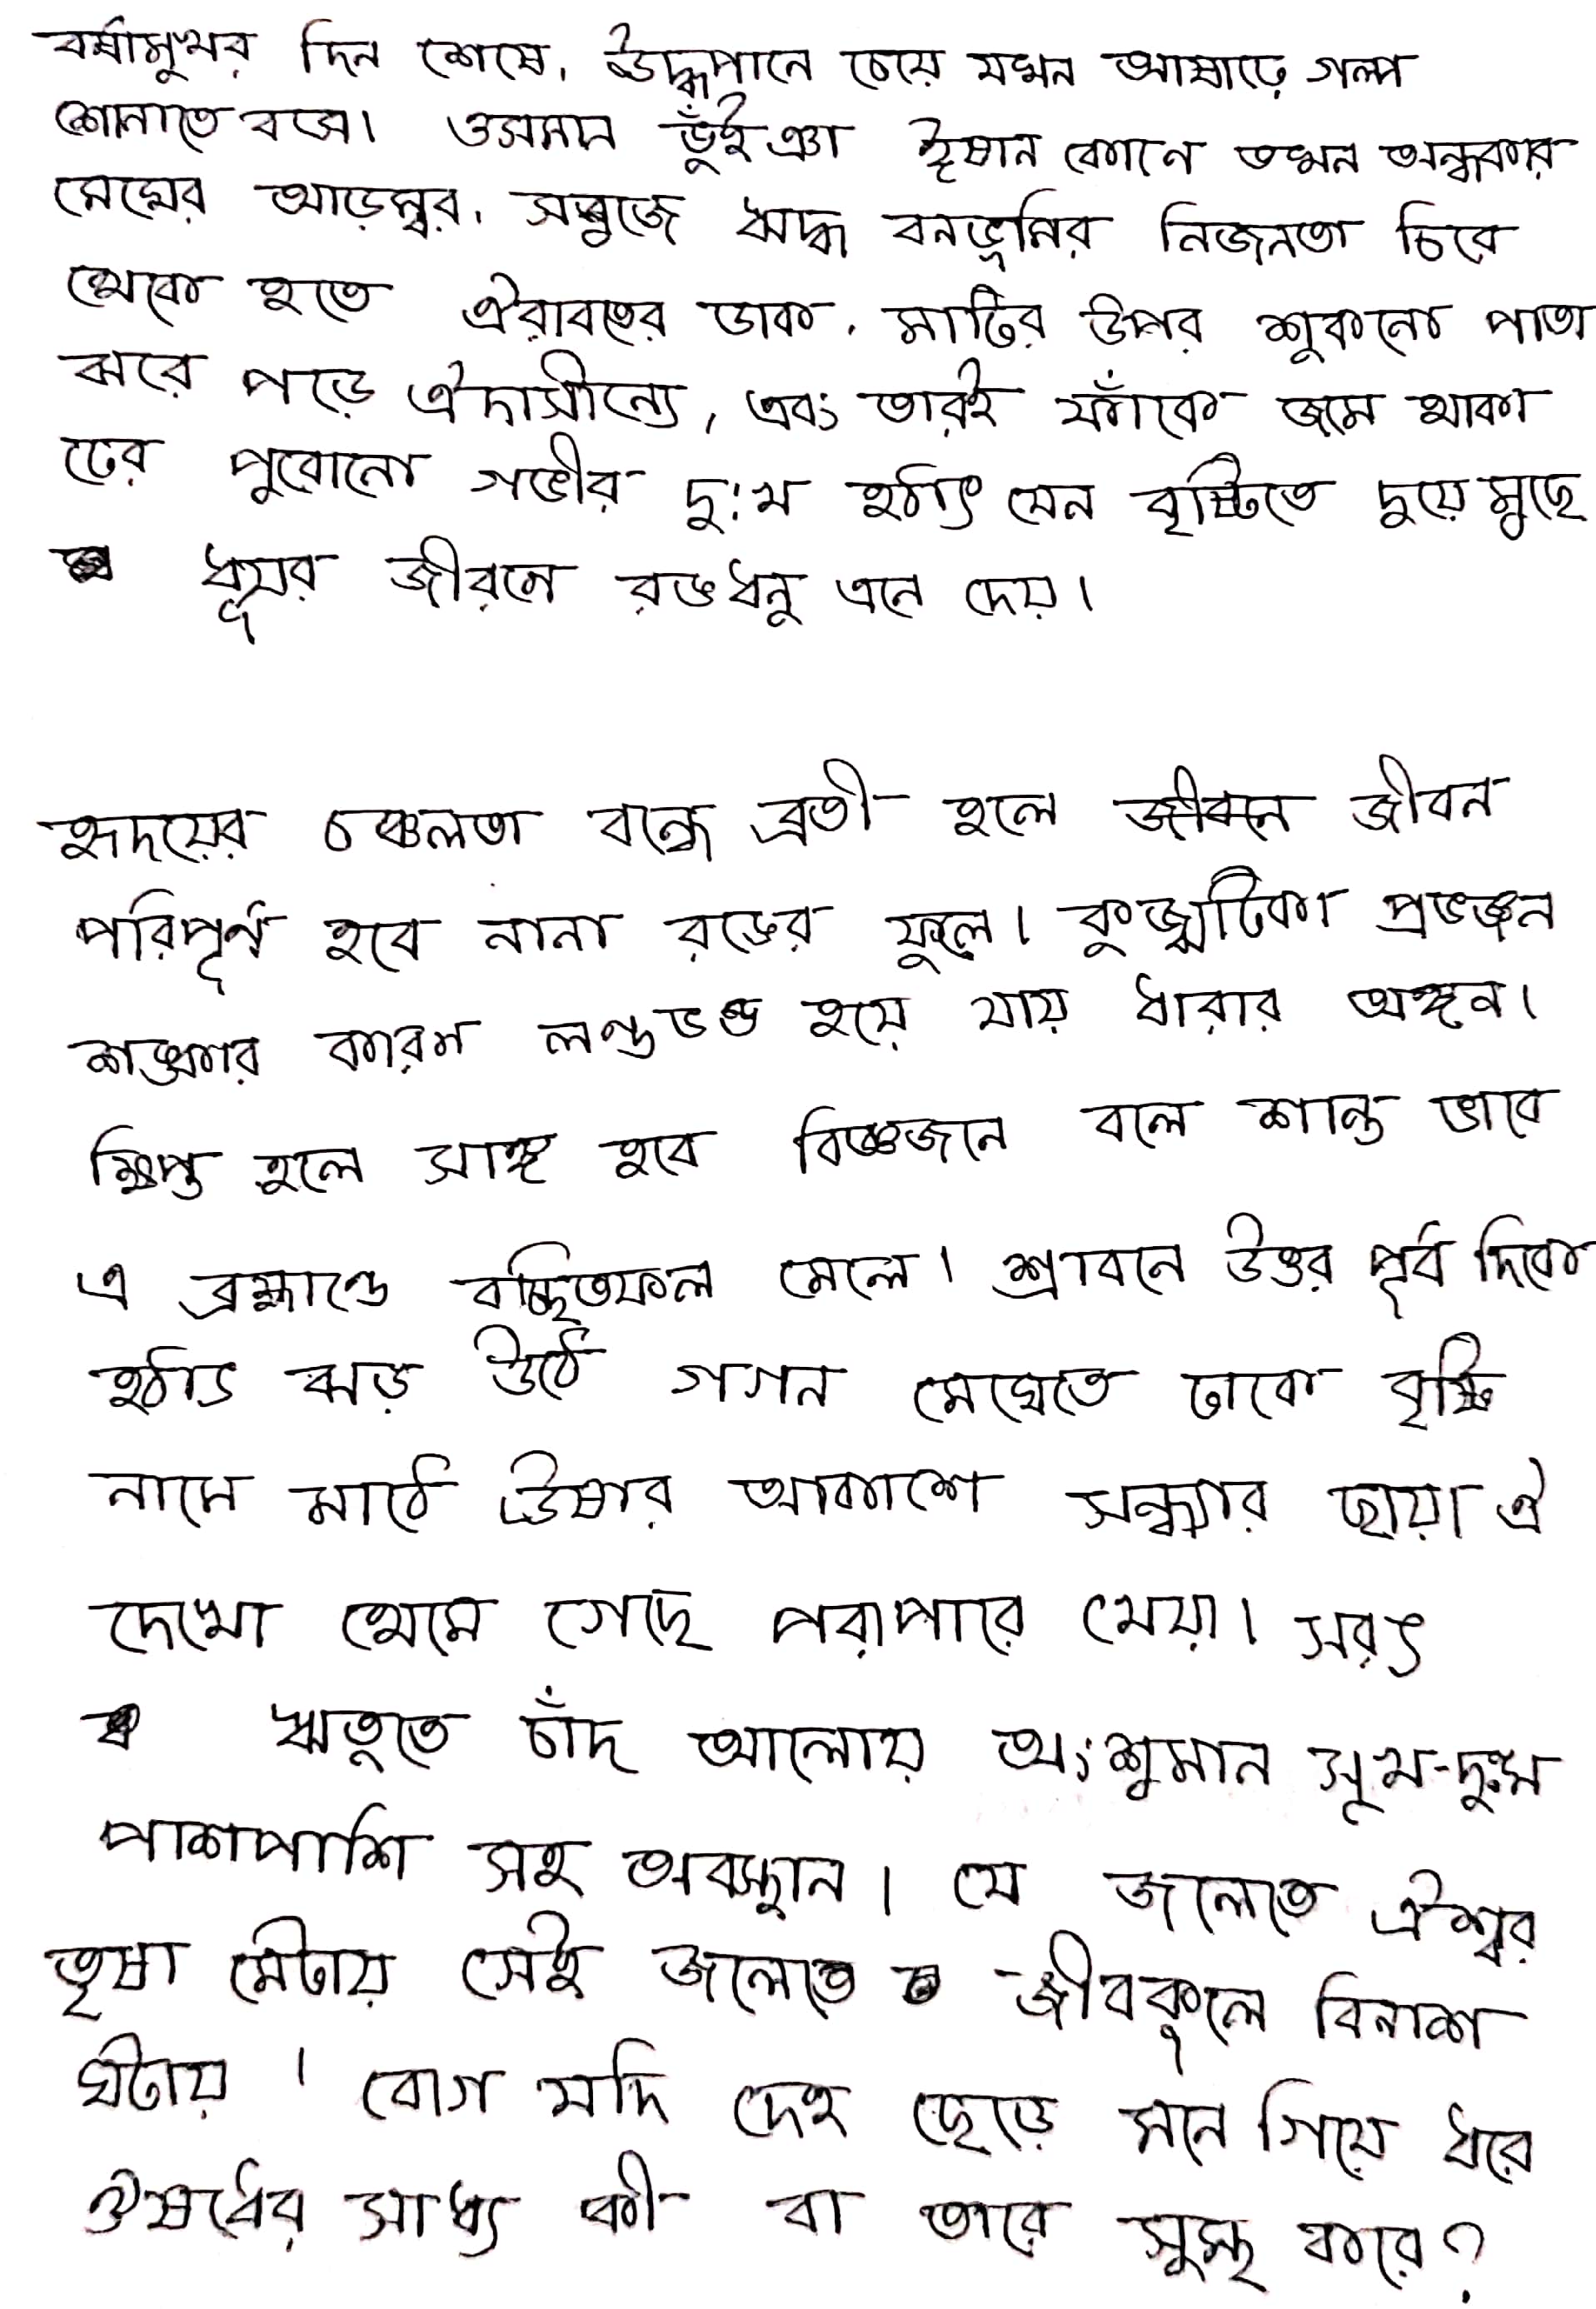 বর্ষামুখর দিন শেষে, ঊর্দ্ধপানে চেয়ে যখন আষাঢ়ে গল্প
শোনাতে বসে। ওসমান ভুঁইঞা ঈষান কোনে তখন অন্ধকার
মেঘের আড়ম্বর, সবুজে ঋদ্ধ বনভূমির নির্জনতা চিরে
থেকে হতে ঐরাবতের ডাক, মাটির উপর শুকনো পাতা
ঝরে পড়ে ঐদাসীন্যে, এবং তারই ফাঁকে জমে থাকা
ঢের পুরোনো গভীর দু:খ হঠাৎ যেন বৃষ্টিতে দুয়ে মুছে
ধূসর জীবনে রঙধনু এনে দেয়।
হৃদয়ের চঞ্চলতা বন্ধে ব্রতী হলে জীবন
পরিপূর্ণ হবে নানা রঙের ফুলে। কুজ্ঝটিকা প্রভঞ্জন
শঙ্কার কারণ লণ্ডভণ্ড হয়ে যায় ধারার অঙ্গন।
ক্ষিপ্ত হলে সাঙ্গ হবে বিজ্ঞজনে বলে শান্ত ভাবে
এ ব্রহ্মাণ্ডে বাঞ্ছিতফল মেলে। শ্রাবনে উত্তর পূর্ব দিকে
হঠাৎ ঝড় উঠে গগন মেঘেতে ঢাকে বৃষ্টি
নামে মাঠে ঊষার আকাশে সন্ধ্যার ছায়া ঐ
দেখো থেমে গেছে পরাপারে খেয়া। সরৎ
ঋতুতে চাঁদ আলোয় অংশুমান সূখ-দুঃখ
পাশপাশি সহ অবস্থান। যে জলেতে ঐশ্বর
তৃষা মেটায় সেই জলেতে জীবকূলে বিনাশ
ঘটায়। রোগ যদি দেহ ছেড়ে মনে গিয়ে ধরে
ঔষধের সাধ্য কী বা তারে সুস্থ করে?